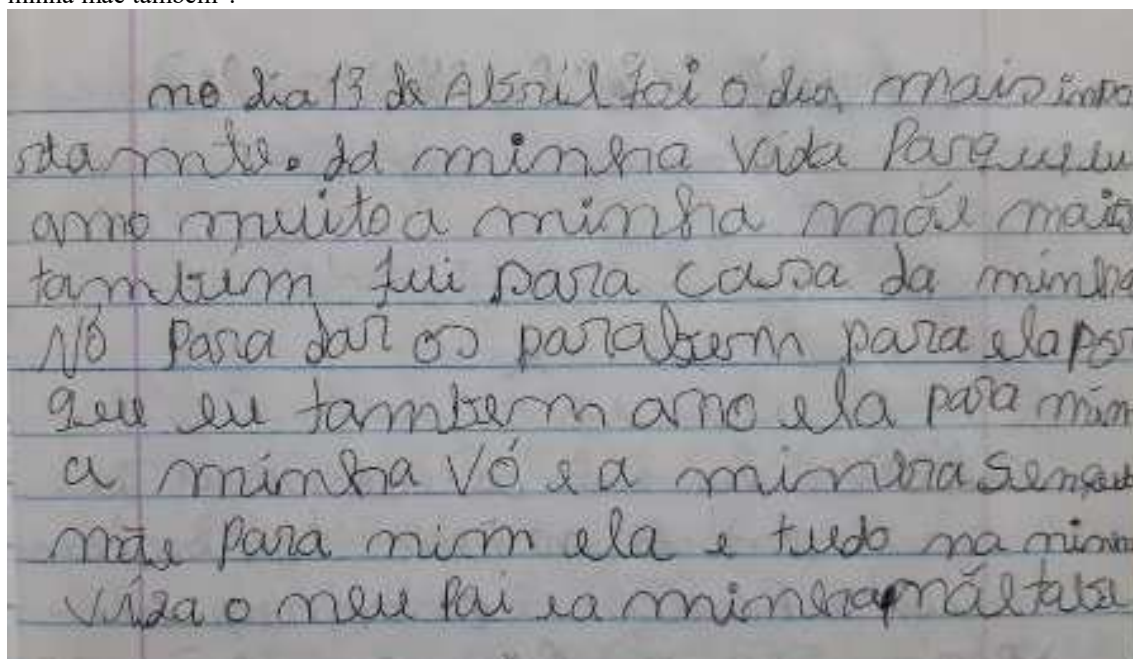 minha mãe também".
no dia 13 de Abril foi o dia mais impo
rtamnte. da minha vida Porque eu
amo muito a minha mãe mais
tambem fui para casa da minha
Vó Para dar os parabem para ela por
que eu tambem amo ela para mim
a minha Vó e a minha
mãe para mim ela e tudo na minha
vida o meu Pai e a minha mãe